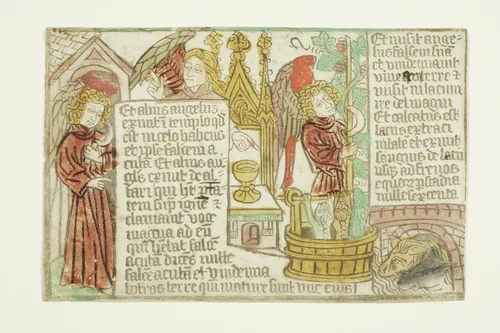 Et alius angelus
exivit d templo qd
est in celo habens
et ipse falcem a
cutā Et alius an
gels exivit de al
tari qui ht ptā
tem supr ignē et
clamavit voce
magna ad eū
qui hebat falcē
acutā dicēs mitte
falcē acutā et vindemia
botros terre qui mature sunt vue eius
Et misit ange
lus falcem suā
et vindemiavit
vineā terre et
misit in lacum
ire dei magni
Et calcatus est
lacus extra ci
vitatē et exivit
sanguis de lacu
usqz ad frenos
equor p stadia
mille sexcenta